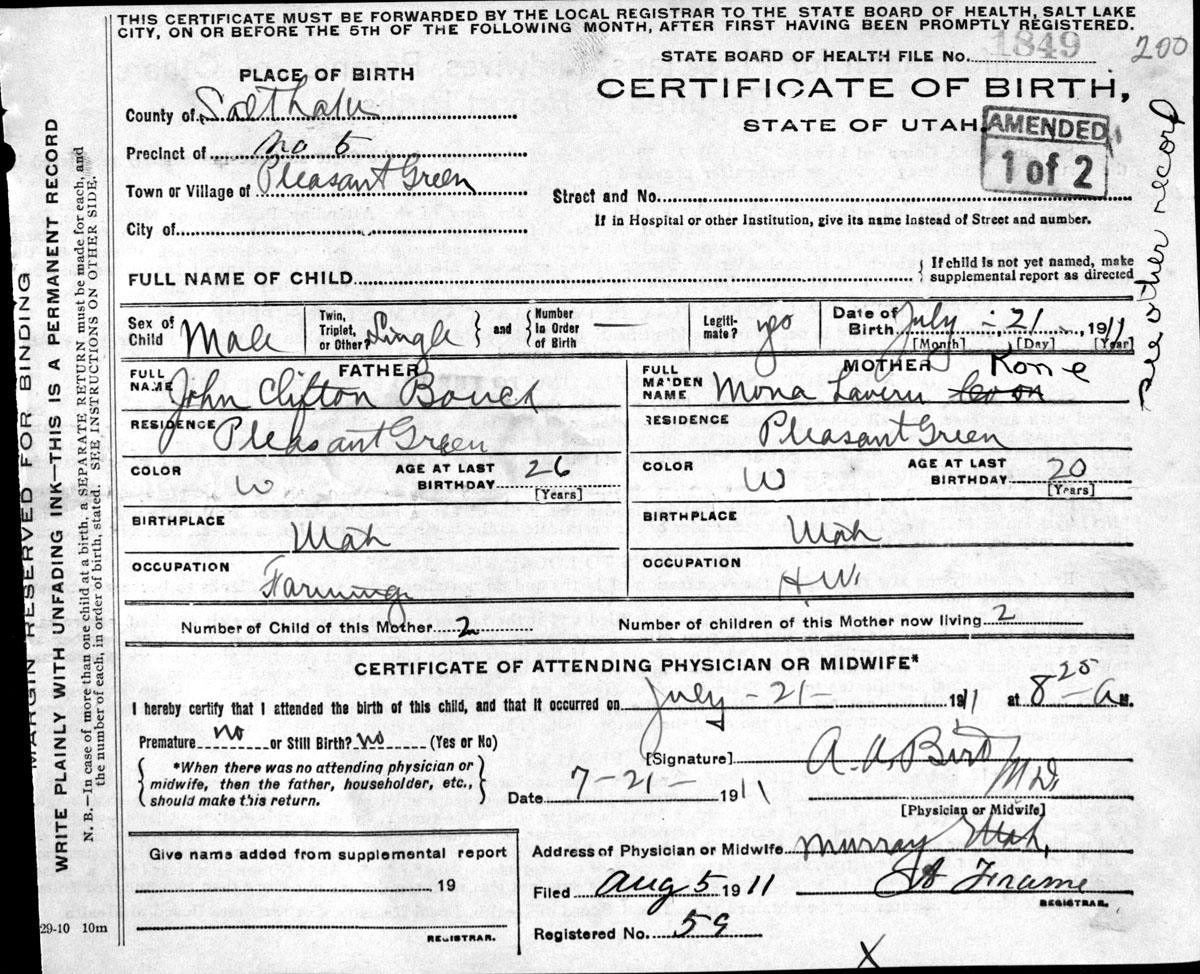 THIS CERTIFICATE MUST BE FORWARDED BY THE LOCAL REGISTRAR TO THE STATE BOARD OF HEALTH, SALT LAKE
CITY, ON OR BEFORE THE 5TH OF THE FOLLOWING MONTH, AFTER FIRST HAVING BEEN PROMPTLY REGISTERED.
STATE BOARD OF HEALTH FILE No. 1849
200
PLACE OF BIRTH
CERTIFICATE OF BIRTH,
County of
STATE OF UTAH.
AMENDED
1 of 2
Precinct of No 5
Town or Village of Pleasant Green
Street and No.
City of
If in Hospital or other Institution, give its name instead of Street and number.
see other record
FULL NAME OF CHILD
{ If child is not yet named, make
supplemental report as directed
Sex of Child Male
Twin, Triplet, or Other? Single } and { Number in Order of Birth
Legiti-mate? yes
Date of Birth July - 21 -, 1911
[Month] [Day] [Year]
FATHER
FULL NAME John Clifton
RESIDENCE Pleasant Green
COLOR W
AGE AT LAST BIRTHDAY 26
[Years]
BIRTHPLACE Utah
OCCUPATION Farming
MOTHER
FULL MAIDEN NAME Mona
RESIDENCE Pleasant Green
COLOR W
AGE AT LAST BIRTHDAY 20
[Years]
BIRTHPLACE Utah
OCCUPATION H.W.
Number of Child of this Mother 2
Number of children of this Mother now living 2
CERTIFICATE OF ATTENDING PHYSICIAN OR MIDWIFE*
I hereby certify that I attended the birth of this child, and that it occurred on July - 21 - 1911 at 8 25 A M.
Premature no or Still Birth? no (Yes or No)
{ *When there was no attending physician or
midwife, then the father, householder, etc.,
should make this return. }
[Signature] A. A. Bird
M.D.
[Physician or Midwife]
Date 7-21- 1911
Address of Physician or Midwife Murray Utah,
Give name added from supplemental report
19
REGISTRAR.
Filed Aug 5 1911
REGISTRAR.
Registered No. 59
X
29-10 10m
MARGIN RESERVED FOR BINDING
WRITE PLAINLY WITH UNFADING INK—THIS IS A PERMANENT RECORD
N. B.—In case of more than one child at a birth, a SEPARATE RETURN must be made for each, and
the number of each, in order of birth, stated. SEE INSTRUCTIONS ON OTHER SIDE.